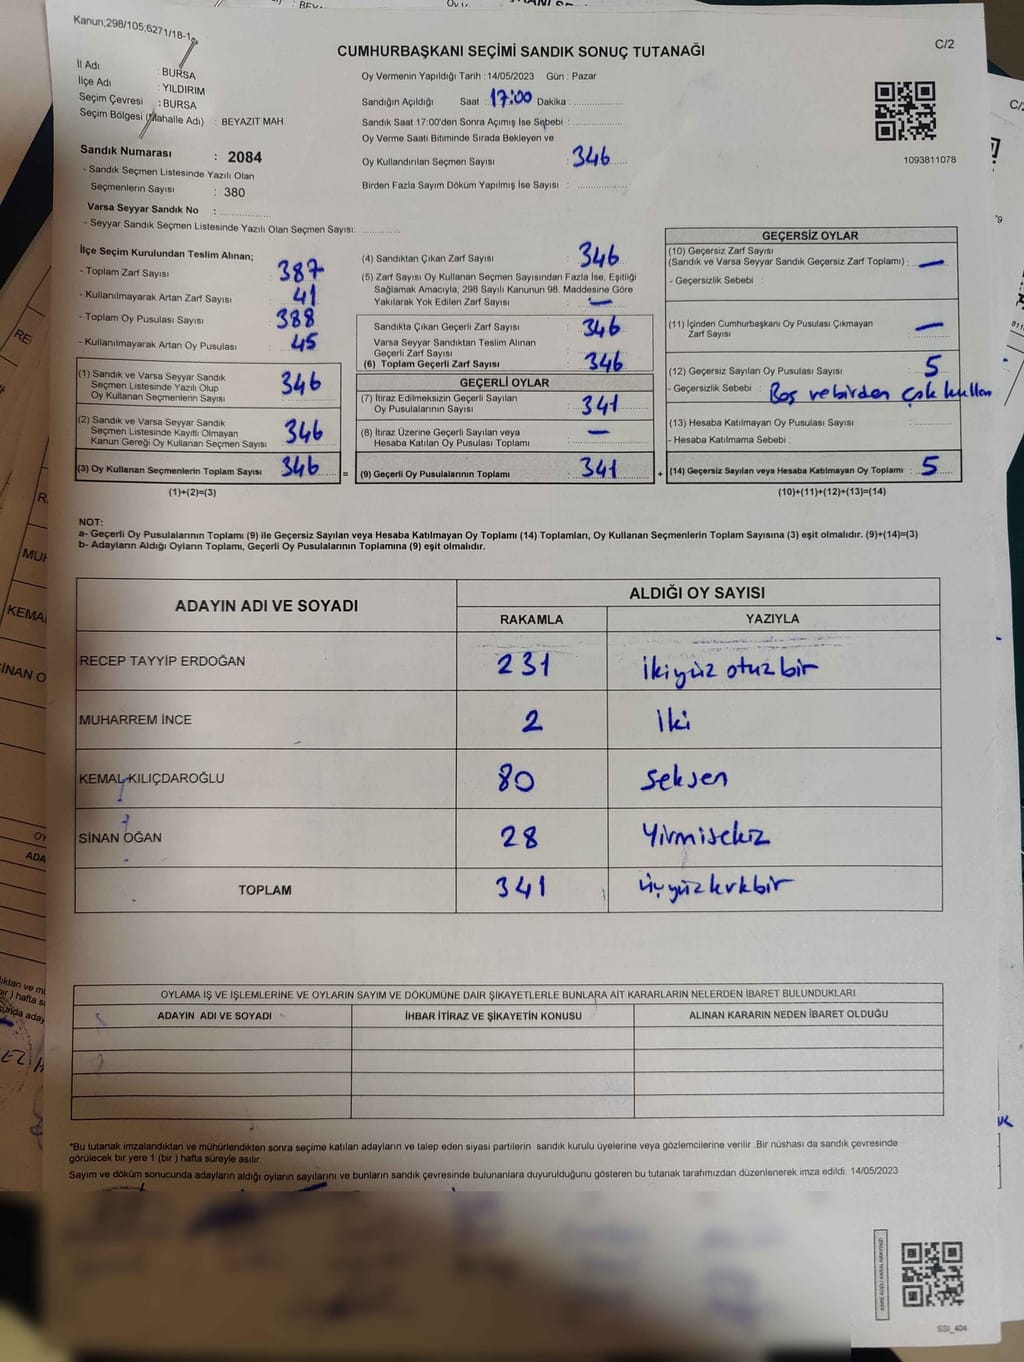 Kanun;298/105,6271/18-1
C/2
CUMHURBAŞKANI SEÇİMİ SANDIK SONUÇ TUTANAĞI
İl Adı : BURSA
İlçe Adı : YILDIRIM
Seçim Çevresi : BURSA
Seçim Bölgesi (Mahalle Adı) : BEYAZIT MAH.
Sandık Numarası : 2084
- Sandık Seçmen Listesinde Yazılı Olan
Seçmenlerin Sayısı : 380
Varsa Seyyar Sandık No : ....................
- Seyyar Sandık Seçmen Listesinde Yazılı Olan Seçmen Sayısı: ..............
Oy Vermenin Yapıldığı Tarih : 14/05/2023 Gün : Pazar
Sandığın Açıldığı Saat : 17:00 Dakika : ..................
Sandık Saat 17:00'den Sonra Açımış İse Sebebi : ..................
Oy Verme Saati Bitiminde Sırada Bekleyen ve
Oy Kullandırılan Seçmen Sayısı : 346
Birden Fazla Sayım Döküm Yapılmış İse Sayısı : ..................
1093811078
İlçe Seçim Kurulundan Teslim Alınan;
- Toplam Zarf Sayısı : 387
- Kullanılmayarak Artan Zarf Sayısı : 41
- Toplam Oy Pusulası Sayısı : 388
- Kullanılmayarak Artan Oy Pusulası : 45
(1) Sandık ve Varsa Seyyar Sandık
Seçmen Listesinde Yazılı Olup
Oy Kullanan Seçmenlerin Sayısı : 346
(2) Sandık ve Varsa Seyyar Sandık
Seçmen Listesinde Kayıtlı Olmayan
Kanun Gereği Oy Kullanan Seçmen Sayısı : 346
(3) Oy Kullanan Seçmenlerin Toplam Sayısı : 346 =
(1)+(2)=(3)
(4) Sandıktan Çıkan Zarf Sayısı : 346
(5) Zarf Sayısı Oy Kullanan Seçmen Sayısından Fazla İse, Eşitliği
Sağlamak Amacıyla; 298 Sayılı Kanunun 98. Maddesine Göre
Yakılarak Yok Edilen Zarf Sayısı : —
Sandıkta Çıkan Geçerli Zarf Sayısı : 346
Varsa Seyyar Sandıktan Teslim Alınan
Geçerli Zarf Sayısı
(6) Toplam Geçerli Zarf Sayısı : 346
GEÇERLİ OYLAR
(7) İtiraz Edilmeksizin Geçerli Sayılan
Oy Pusulalarının Sayısı : 341
(8) İtiraz Üzerine Geçerli Sayılan veya
Hesaba Katılan Oy Pusulası Toplamı : —
(9) Geçerli Oy Pusulalarının Toplamı : 341 +
GEÇERSİZ OYLAR
(10) Geçersiz Zarf Sayısı
(Sandık ve Varsa Seyyar Sandık Geçersiz Zarf Toplamı) : —
- Geçersizlik Sebebi :
(11) İçinden Cumhurbaşkanı Oy Pusulası Çıkmayan
Zarf Sayısı : —
(12) Geçersiz Sayılan Oy Pusulası Sayısı : 5
- Geçersizlik Sebebi : Boş ve birden çok kullan
(13) Hesaba Katılmayan Oy Pusulası Sayısı : ..............
- Hesaba Katılmama Sebebi :
(14) Geçersiz Sayılan veya Hesaba Katılmayan Oy Toplamı : 5
(10)+(11)+(12)+(13)=(14)
NOT:
a- Geçerli Oy Pusulalarının Toplamı (9) ile Geçersiz Sayılan veya Hesaba Katılmayan Oy Toplamı (14) Toplamları, Oy Kullanan Seçmenlerin Toplam Sayısına (3) eşit olmalıdır. (9)+(14)=(3)
b- Adayların Aldığı Oyların Toplamı, Geçerli Oy Pusulalarının Toplamına (9) eşit olmalıdır.
ADAYIN ADI VE SOYADI
ALDIĞI OY SAYISI
RAKAMLA YAZIYLA
RECEP TAYYİP ERDOĞAN 231 İkiyüz otuz bir
MUHARREM İNCE 2 İki
KEMAL KILIÇDAROĞLU 80 Seksen
SİNAN OĞAN 28 Yirmisekiz
TOPLAM 341 üçyüzkırkbir
OYLAMA İŞ VE İŞLEMLERİNE VE OYLARIN SAYIM VE DÖKÜMÜNE DAİR ŞİKAYETLERLE BUNLARA AİT KARARLARIN NELERDEN İBARET BULUNDUKLARI
ADAYIN ADI VE SOYADI İHBAR İTİRAZ VE ŞİKAYETİN KONUSU ALINAN KARARIN NEDEN İBARET OLDUĞU
*Bu tutanak imzalandıktan ve mühürlendikten sonra seçime katılan adayların ve talep eden siyasi partilerin sandık kurulu üyelerine veya gözlemcilerine verilir .Bir nüshası da sandık çevresinde
görülecek bir yere 1 (bir ) hafta süreyle asılır.
Sayım ve döküm sonucunda adayların aldığı oyların sayılarını ve bunların sandık çevresinde bulunanlara duyurulduğunu gösteren bu tutanak tarafımızdan düzenlenerek imza edildi. 14/05/2023
SSI_404